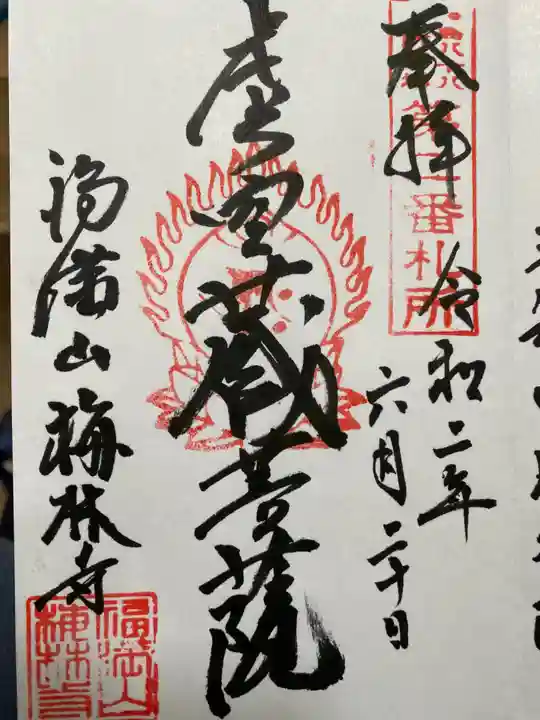 奉拝
第二番札所
令和二年
六月二十日
虚空蔵菩薩
福満山梅林寺
福満山
梅林寺